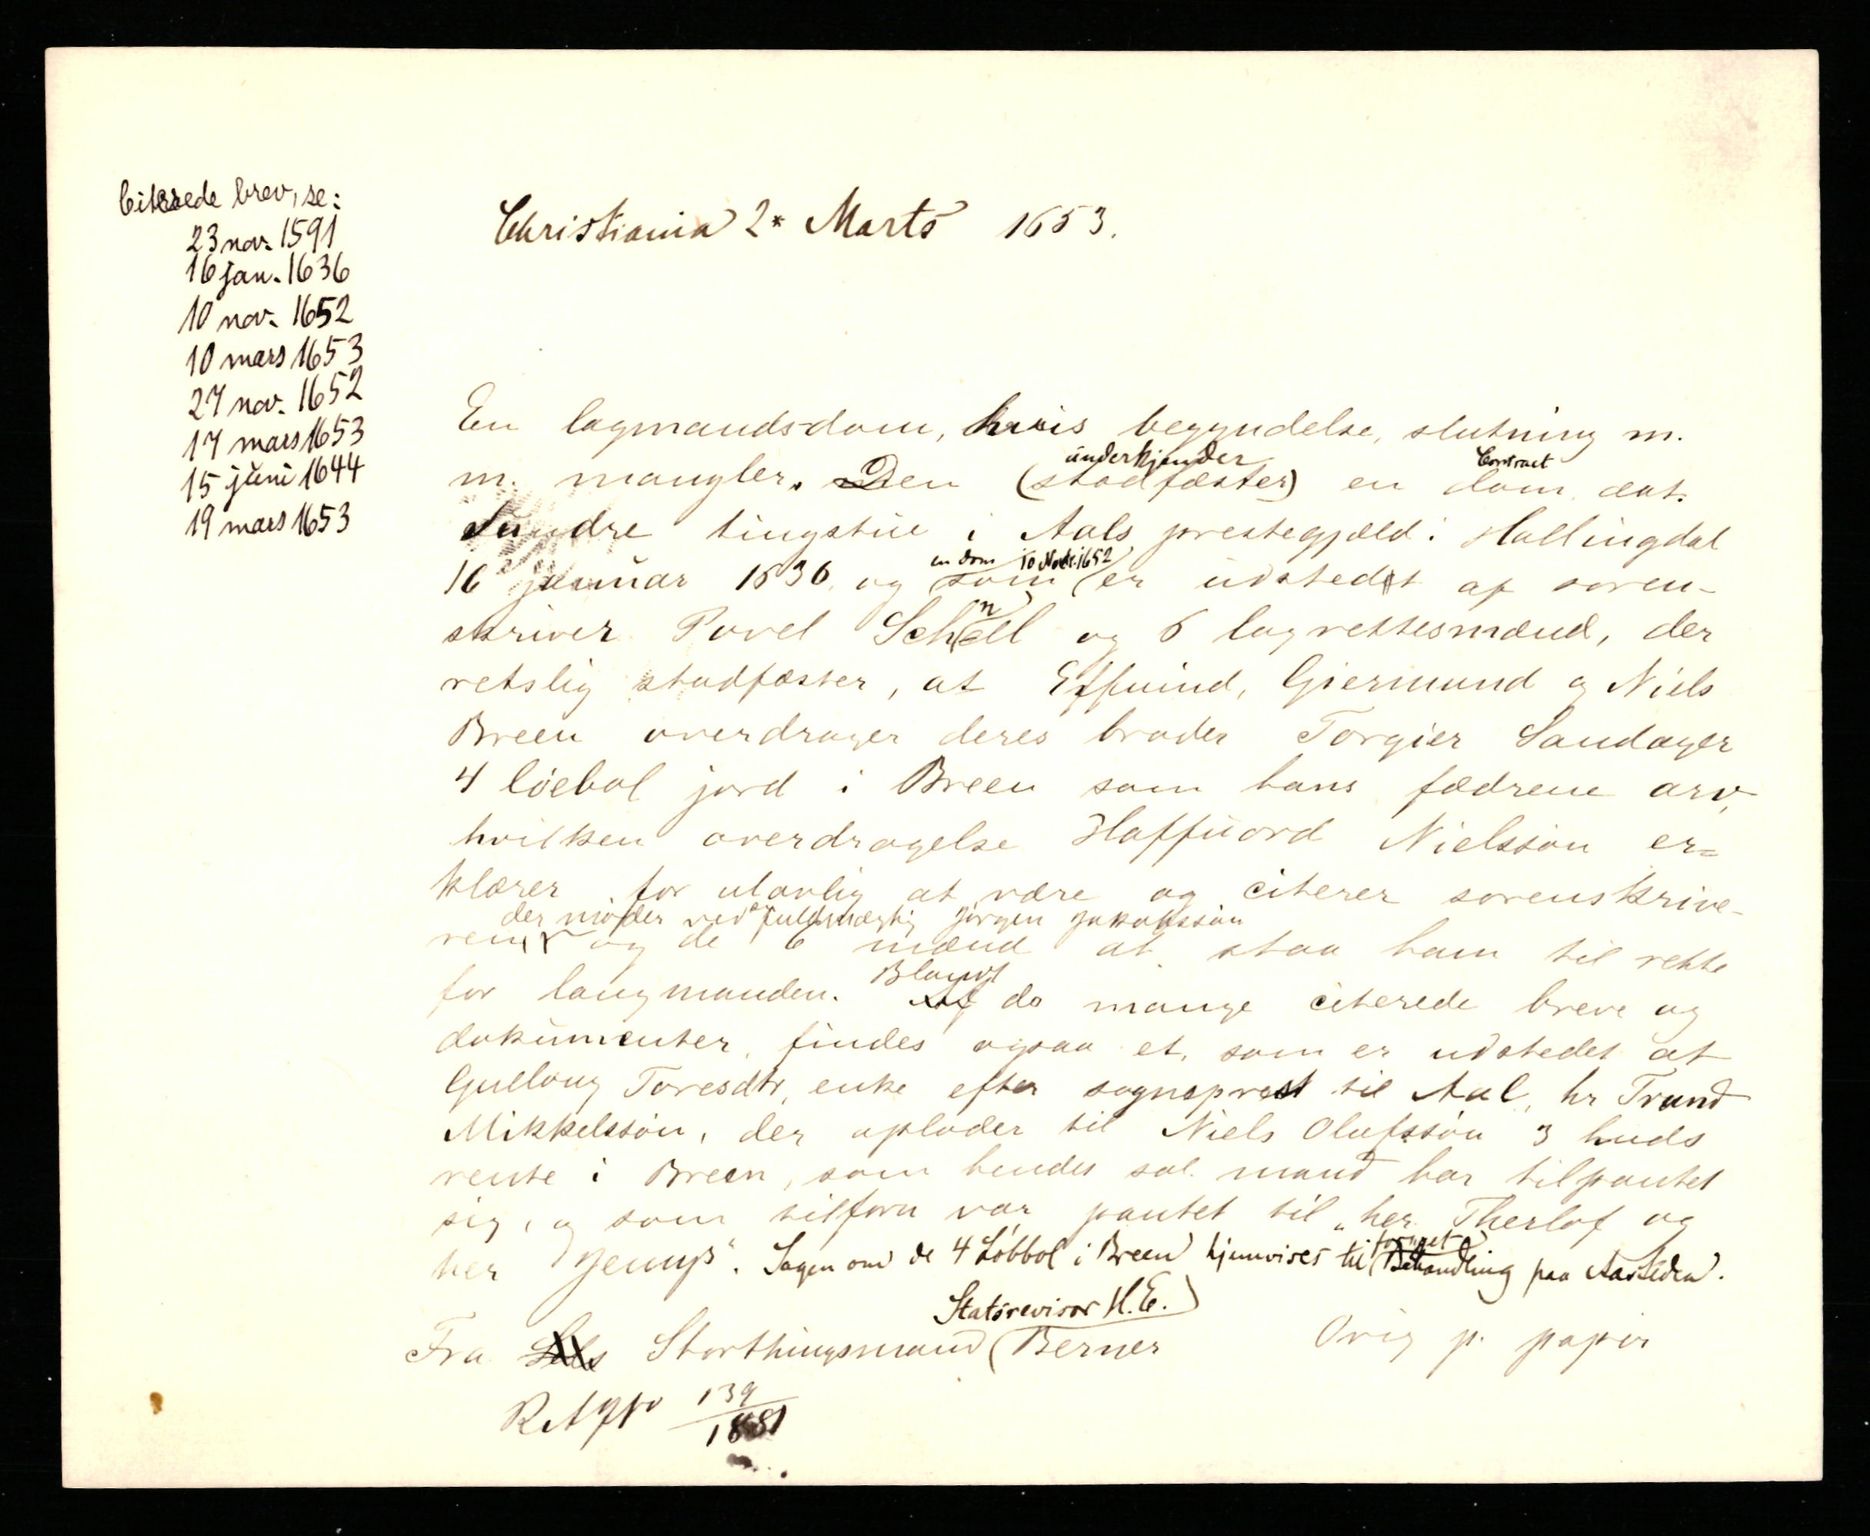 Citerede brev, se:
23 nov. 1591
16 jan. 1636
10 nov. 1652
10 mars 1653
27 nov. 1652
17 mars 1653
15 juni 1644
19 mars 1653
Christiania 2* Marts 1653.
En lagmandsdom, hvis begyndelse, slutning m.
underkjender Contract
m. mangler. Den (stadfæster) en dom, dat.
Sundre tingstue i Aals prestegjæld i Hallingdal
en dom 10 Novbr. 1652
16 januar 1636 og som er udstedt af soren-
skriver Povel Schnell og 6 lagrettesmænd, der
retslig stadfæster, at Effuind, Giermund og Niels
Breen overdrager deres broder Torgier Sandager
4 løebol jord i Breen som hans fædrene arv,
hvilken overdragelse Haffuord Nielssøn er=
klærer for ulovlig at være og citerer sorenskrive-
der møder ved fuldmægtig Jørgen Jakobssøn
ren og de 6 mænd at staa ham til rette
for laugmanden. Blandt de mange citerede breve og
dokumenter, findes ogsaa et, som er udstedet af
Gulloug Toresdtr, enke efter sogneprest til Aal, hr Trund
Mikkelssøn, der oplader til Niels Olufssøn 3 huds
rente i Breen, som hendes sal. mand har tilpantet
sig, og som tilforn var pantet til „her Therlof og
her Jemps“. Sagen om de 4 Løbbol i Breen hjemvises til fornyet Behandling paa Aastedn.
Statsrevisor H.E.
Fra Storthingsmand Berner Orig p. papir
139
1881